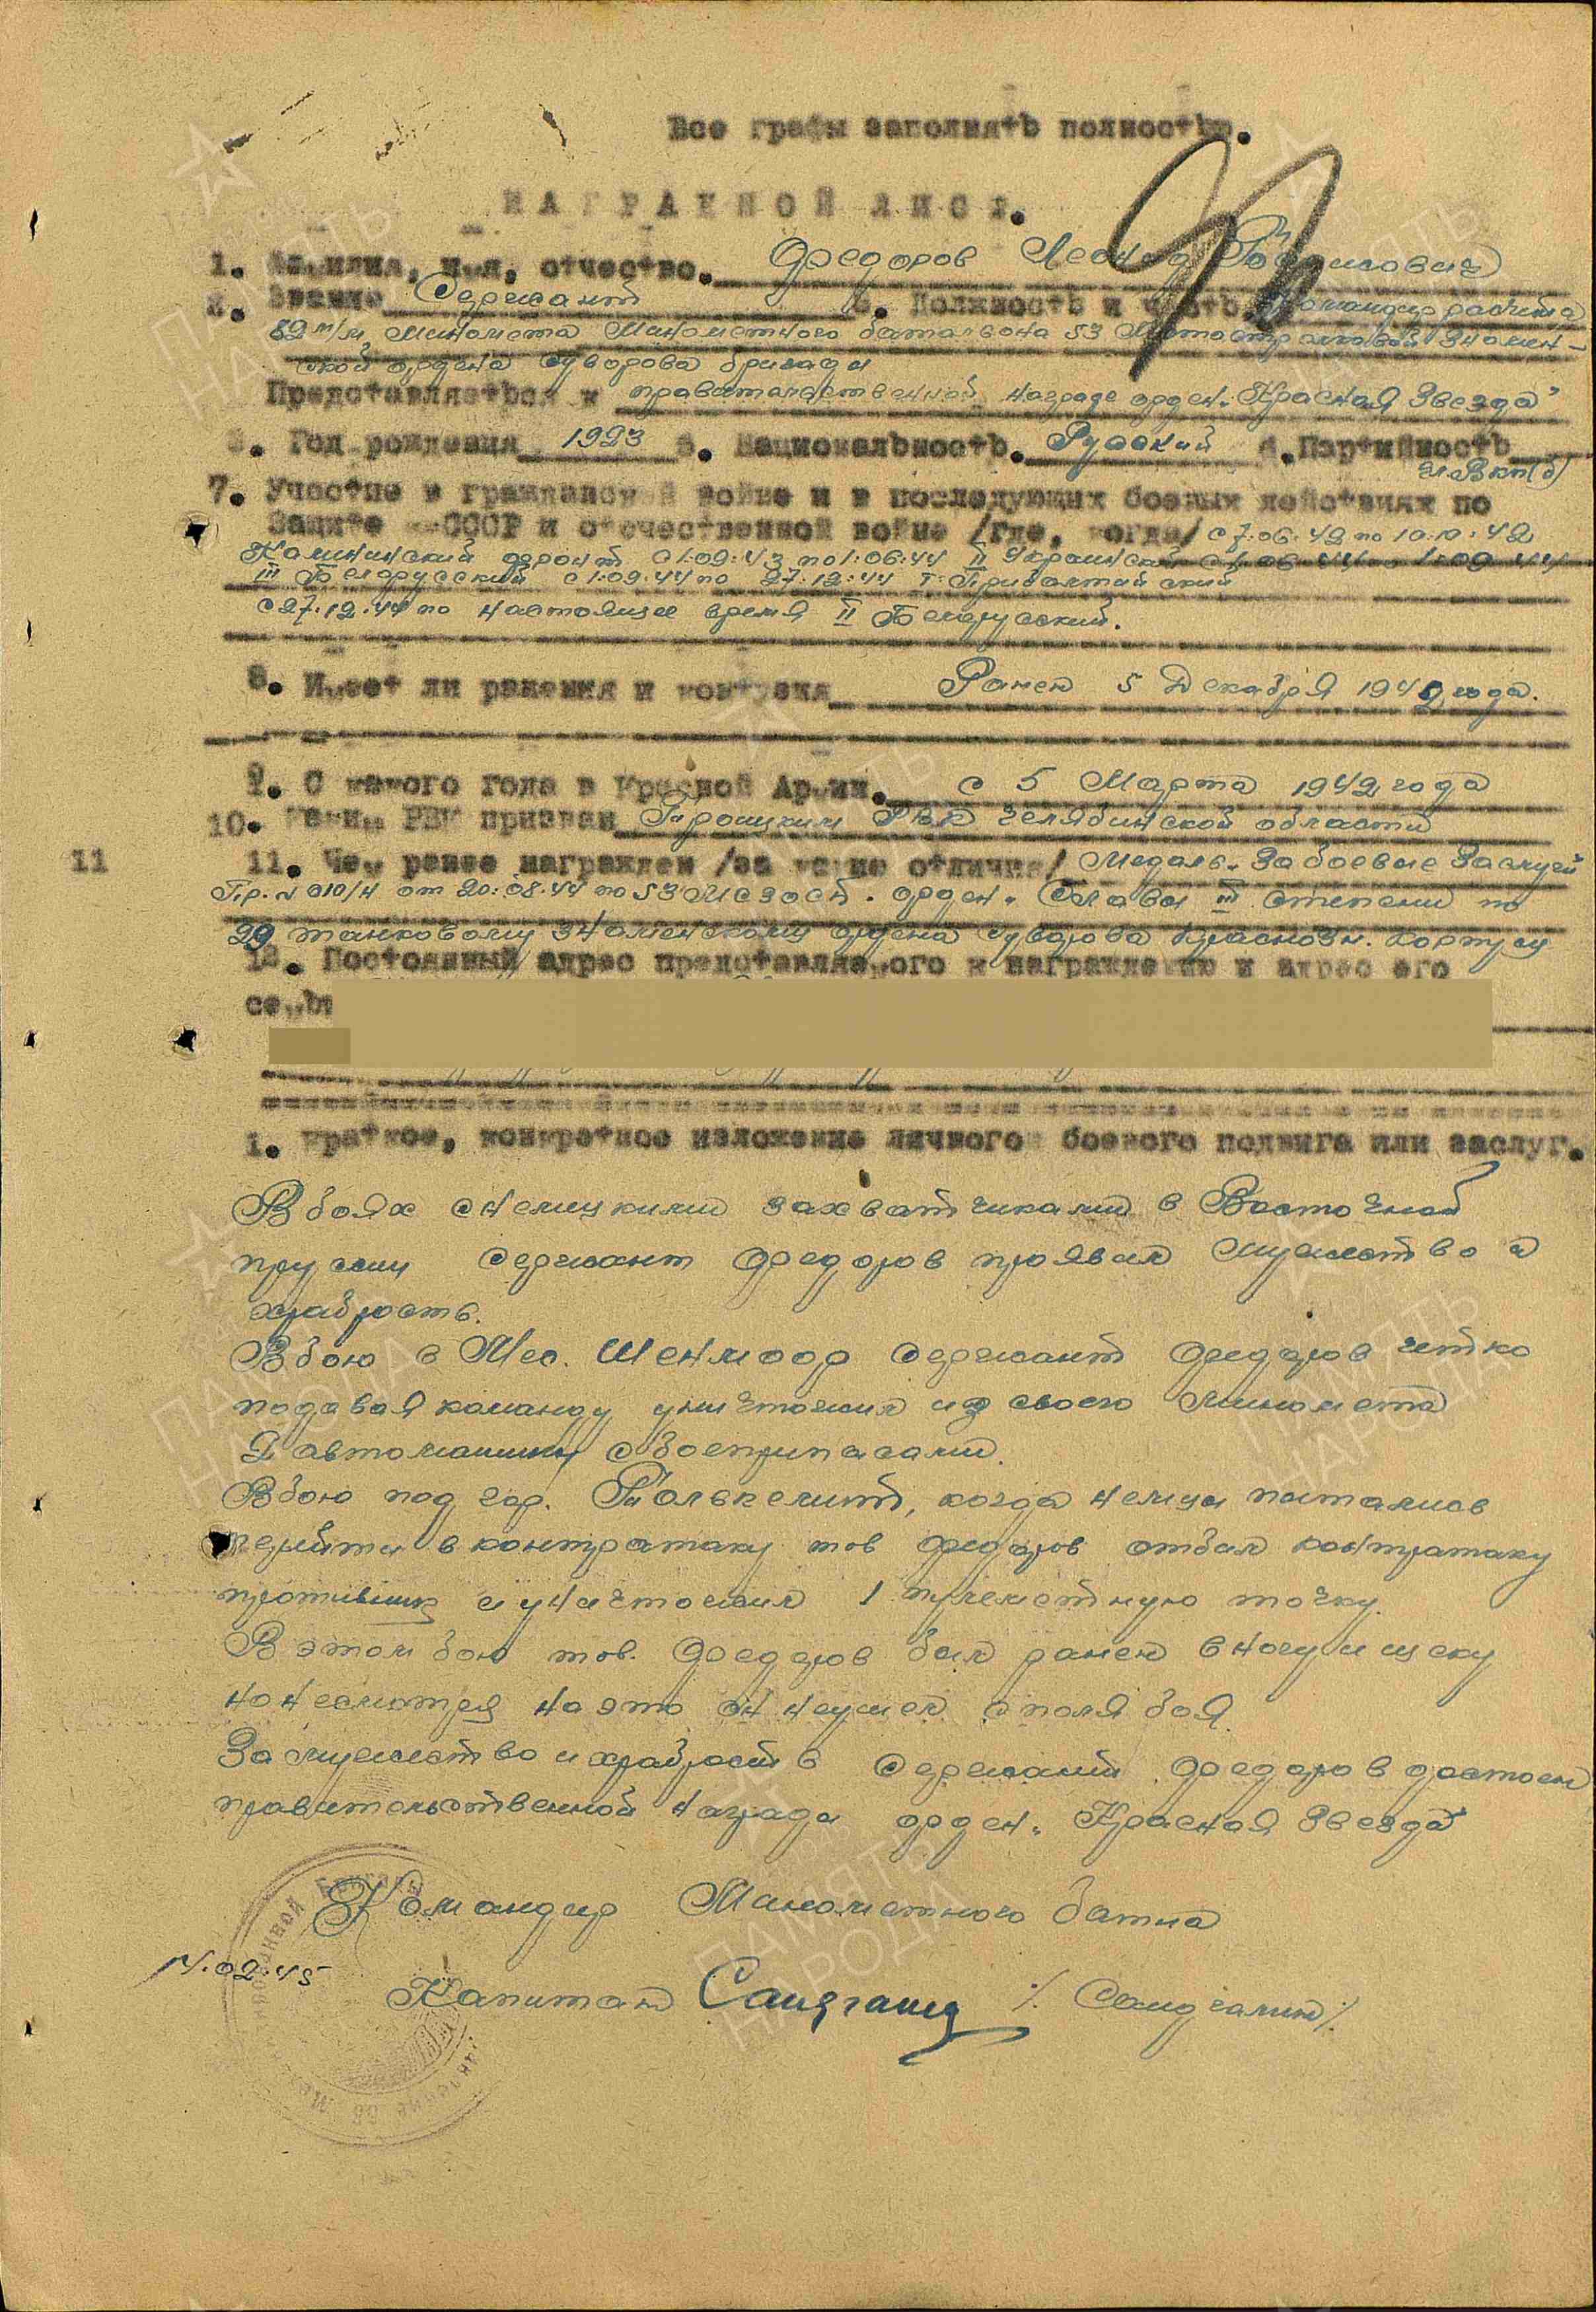 Все графы заполнять полностью.
НАГРАДНОЙ ЛИСТ.
1. Фамилия, имя, отчество. Федоров Леонид Борисович
2. Звание Сержант 3. Должность и часть. Командир расчета
82 м/м Миномета Минометного баталвона 53 Мотострелковой Знамен-
ской ордена Суворова бригады
Представляется к правительственной награде орден "Красная Звезда"
Год рождения 1923 5. Национальность. Русский 6. Партийность
чл. Вкп(б)
7. Участие в гражданской войне и в последующих боевых действиях по
Защите СССР и отечественной войне /где, когда/ с 7:06:42 по 10:10:42
Калининский фронт с 1:09:43 по 1:06:44 II Украинский с 1:06:44 по 1:09:44
III Беларусский с 1:09:44 по 27:12:44 I Прибалтийский
с 27:12:44 по настоящее время II Беларусский.
8. Имеет ли ранения и контузия Ранен 5 Декабря 1942 года.
9. С какого года в Красной Армии. с 5 Марта 1942 года
10. Каким РВК призван Троицким РВК Челябинской области
11
11. Чем ранее награжден /за какие отличия/ Медаль "За боевые Заслуги
Пр. N 010/н от 20:08:44 по 53 МСЗОСБ. орден "Славы III степени по
29 танковому Знаменскому ордена Суворова Краснозн. корпусу
12. Постоянный адрес представляемого к награждению и адрес его
семьи
1. Краткое, конкретное изложение личного боевого подвига или заслуг.
В боях с немецкими захватчиками в Восточной
пруссии Сержант Федоров проявил мужество и
храбрость.
В бою в Мес. Шенмоор Сержант Федоров четко
подавая команду уничтожил из своего миномета
2 автомашины с боеприпасами.
В бою под гор. Толькемит, когда немцы пытались
перейти в контратаку тов Федоров отбил контратаку
противник и уничтожил 1 пулеметную точку.
В этом бою тов. Федоров был ранен в ногу и щеку
но несмотря на это он неушел с поля боя.
За мужество и храбрость Сержант Федоров достоен
правительственной награды орден "Красная Звезда"
Командир Минометного батна
14.02.45
Капитан /. Саидгалин /.